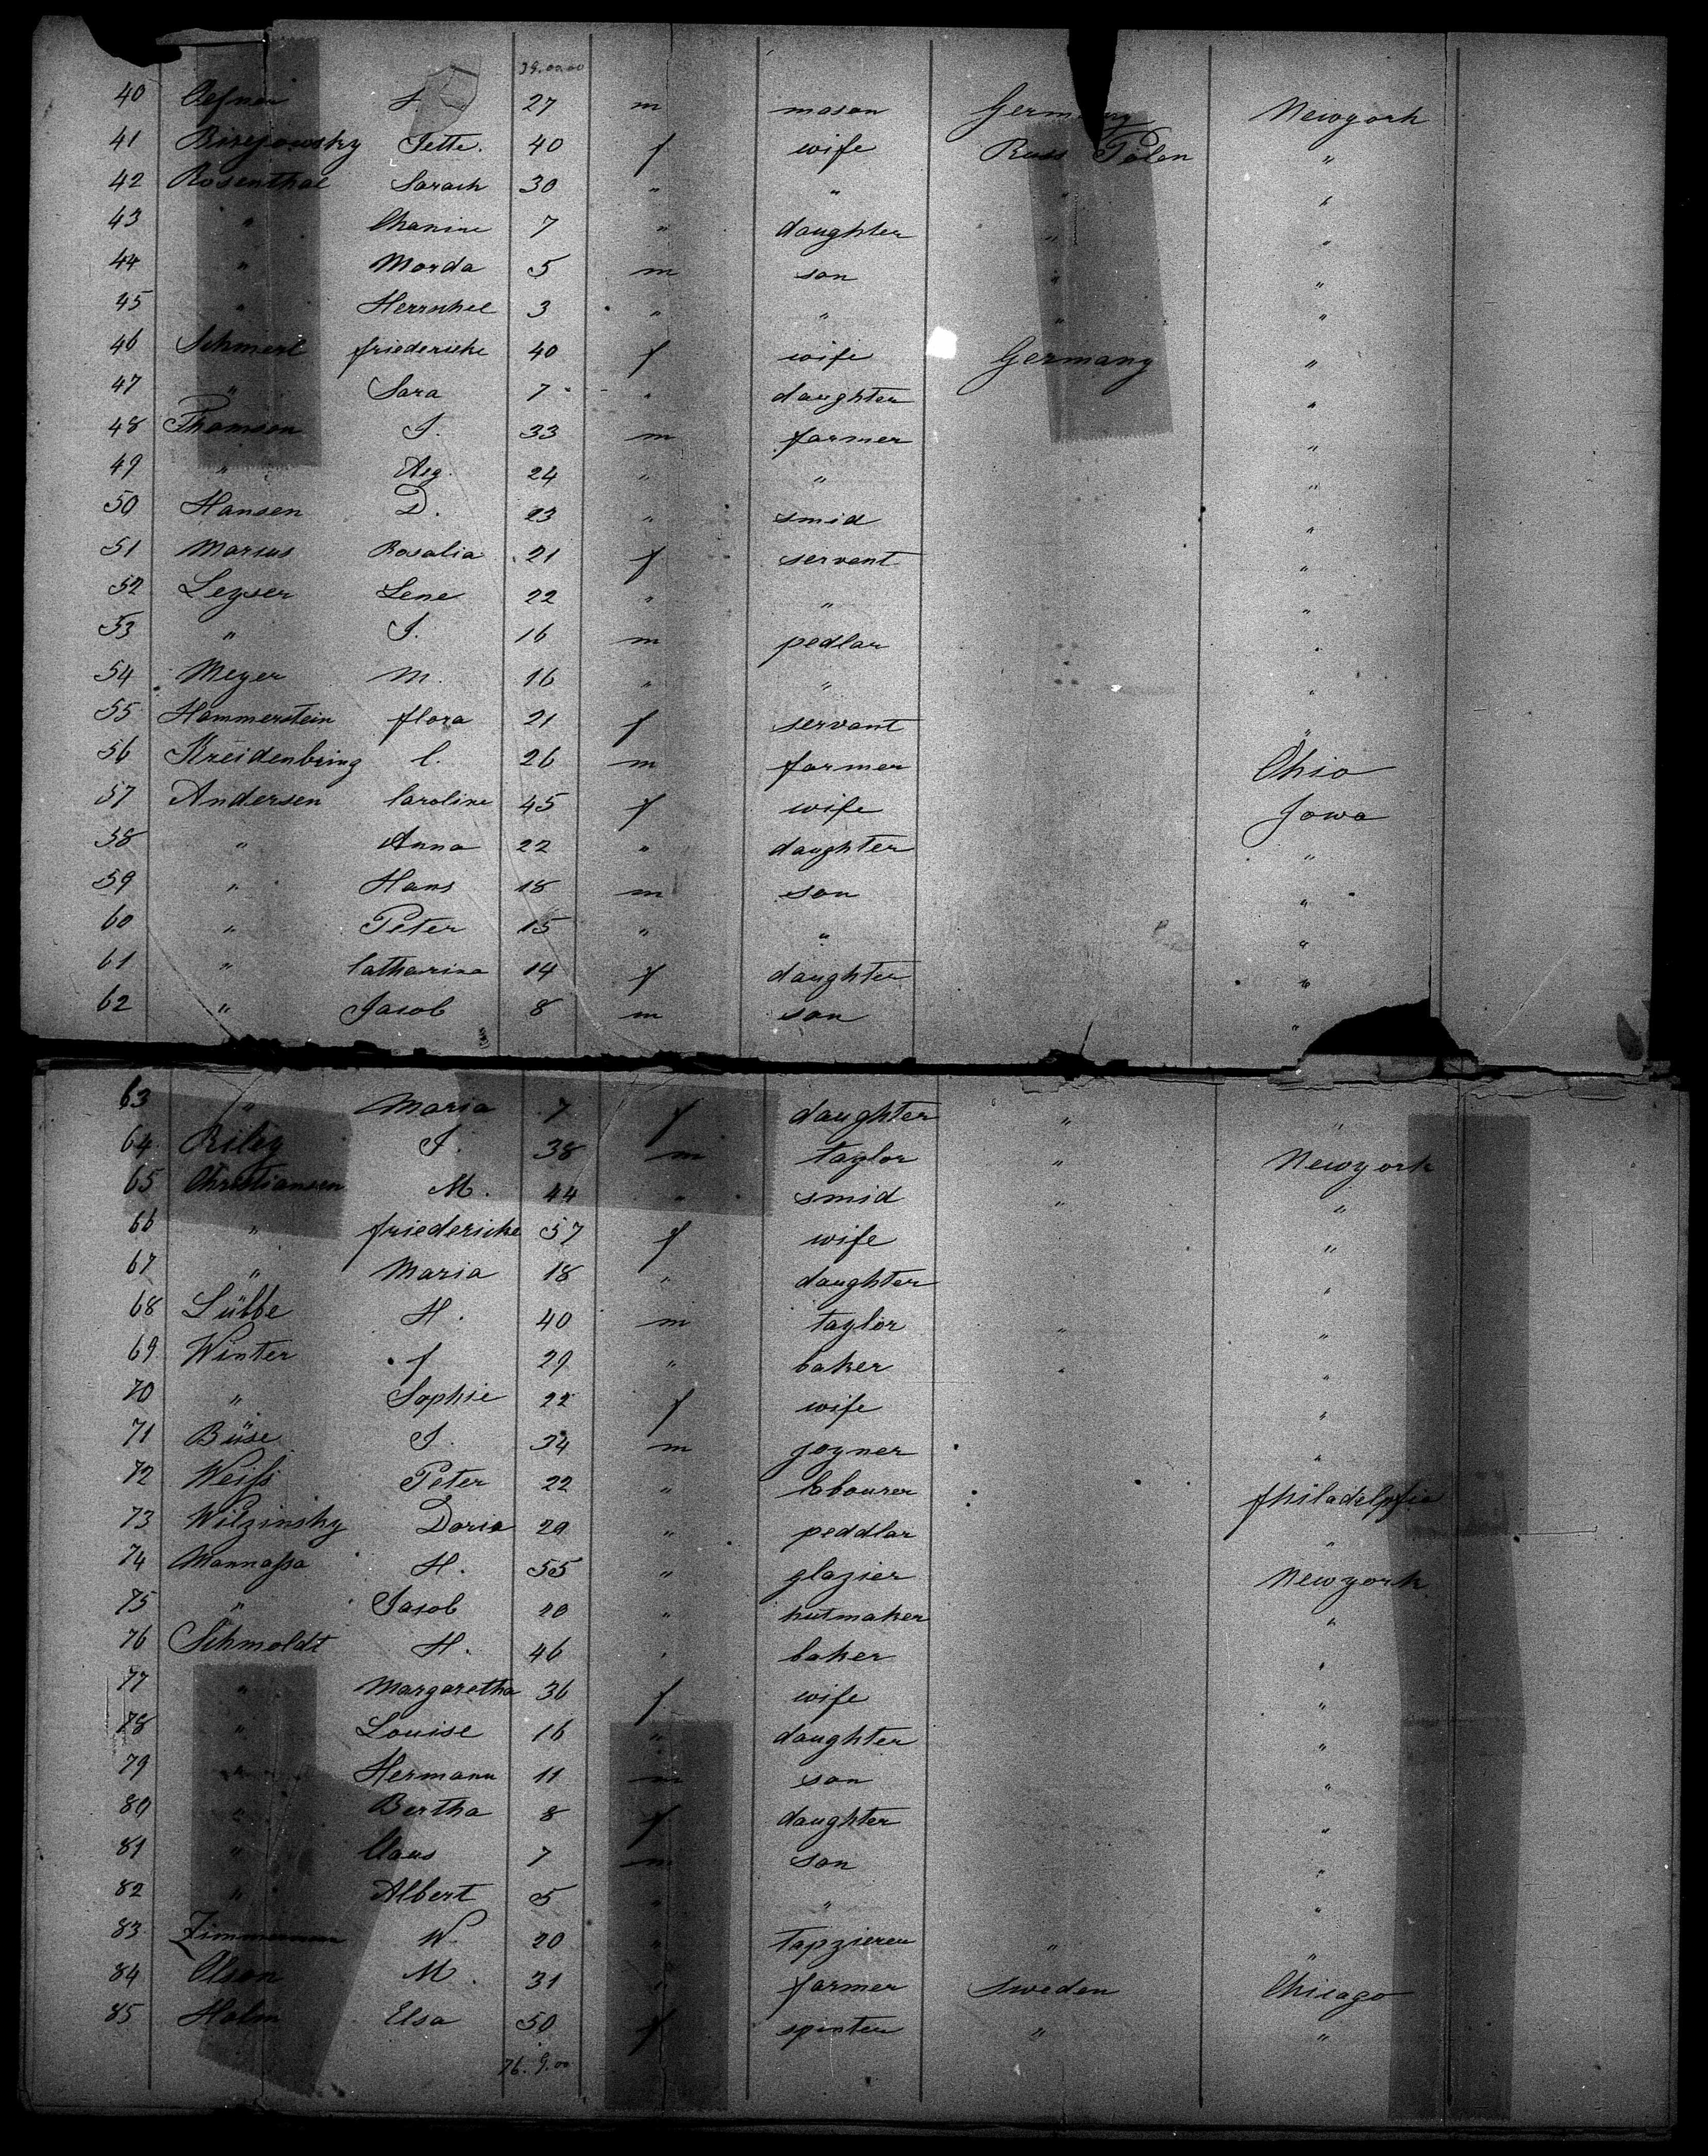 39.00.00
40 Oefner J. 27 m mason Germany Newyork
41 Birejowsky Jette. 40 f wife Russ Polen "
42 Rosenthal Sarach 30 " " " "
43 " Chanine 7 " daughter " "
44 " Morda 5 m son " "
45 " Herrschel 3 " " " "
46 Schmerl friedericke 40 f wife Germany "
47 " Sara 7 " daughter "
48 Thomsen J. 33 m farmer "
49 " Aug. 24 " " "
50 Hansen D. 23 " smid "
51 Marcus Rosalia 21 f servant "
52 Leyser Lene 22 " " "
53 " J. 16 m pedlar "
54 Meyer M. 16 " " "
55 Hammerstein flora 21 f servant "
56 Kreidenbring C. 26 m farmer Ohio
57 Andersen Caroline 45 f wife Jowa
58 " Anna 22 " daughter "
59 " Hans 18 m son "
60 " Peter 15 " " "
61 " Catharina 14 f daughter "
62 " Jacob 8 m son "
63 " Maria 7 f daughter " "
64 Riley J. 38 m taylor " Newyork
65 Christiansen M. 44 " smid " "
66 " friedericke 57 f wife "
67 " Maria 18 " daughter "
68 Lübbe H. 40 m taylor " "
69 Winter f 29 " baker " "
70 " Sophie 22 f wife "
71 Büse J. 34 m joyner "
72 Weiss Peter 22 " labourer philadelpfia
73 Wilzinsky Doris 29 " peddlar "
74 Mannassa H. 55 " glazier Newyork
75 " Jacob 20 " hutmaker "
76 Schmoldt H. 46 " baker "
77 " Margaretha 36 f wife "
78 " Louise 16 " daughter "
79 " Hermann 11 m son "
80 " Bertha 8 f daughter "
81 " Claus 7 m son "
82 " Albert 5 " " "
83 Zimmerman W. 20 " tapzierer " "
84 Olson M. 31 " farmer Sweden Chicago
85 Holm Elsa 50 f spinter " "
76.9.00